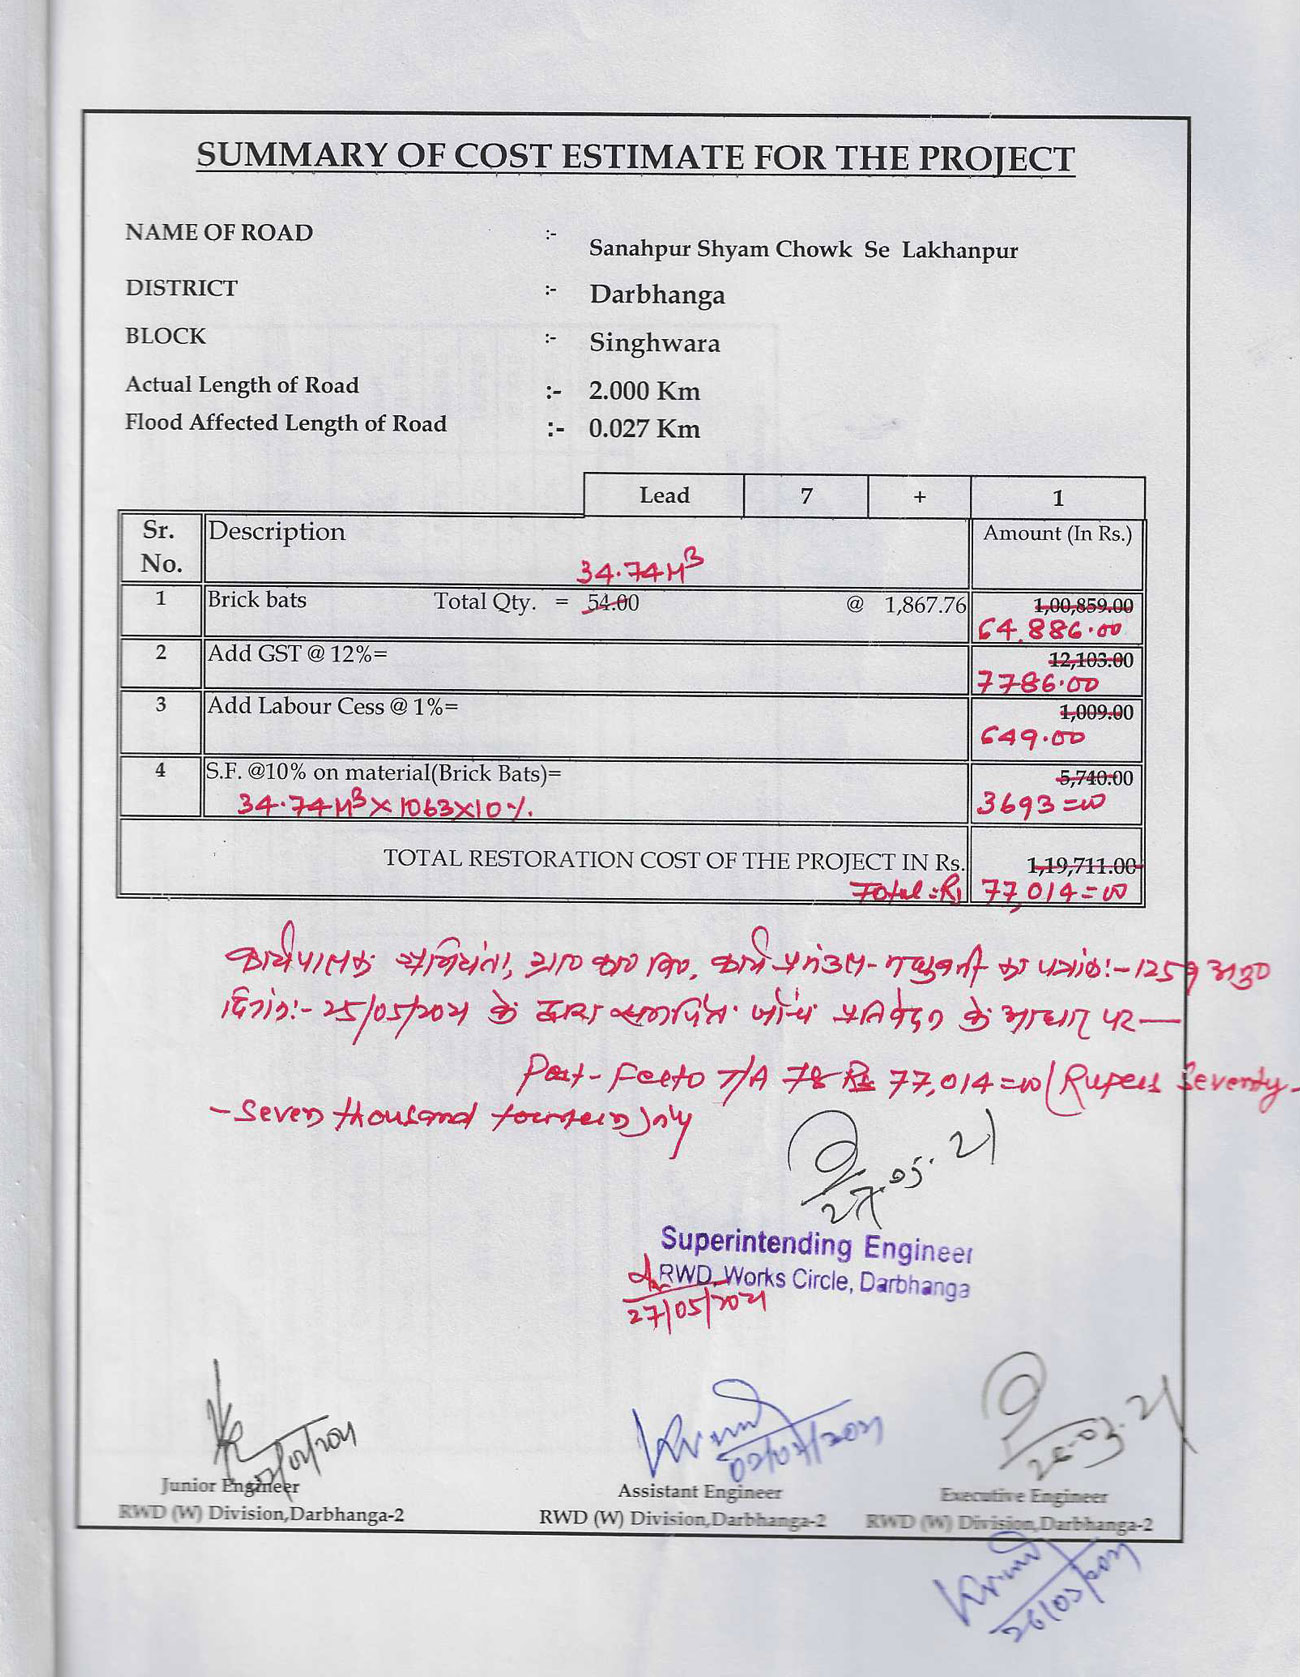 SUMMARY OF COST ESTIMATE FOR THE PROJECT
NAME OF ROAD :- Sanahpur Shyam Chowk Se Lakhanpur
DISTRICT :- Darbhanga
BLOCK :- Singhwara
Actual Length of Road :- 2.000 Km
Flood Affected Length of Road :- 0.027 Km
Lead 7 + 1
Sr. No. Description Amount (In Rs.)
34.74 M3
1 Brick bats Total Qty. = 54.00 @ 1,867.76 1,00,859.00
64,886.00
2 Add GST @ 12%= 12,103.00
7786.00
3 Add Labour Cess @ 1%= 1,009.00
649.00
4 S.F. @10% on material(Brick Bats)= 5,740.00
34.74M3×1063×10%. 3693=00
TOTAL RESTORATION COST OF THE PROJECT IN Rs. 1,19,711.00
Total=Rs 77,014=00
कार्यपालक अभियंता, कार्य प्रमंडल- का पत्रांक:-1259
दिनांक:-25/05/2021 के द्वारा समर्पित जाँच प्रतिवेदन के आधार पर—
Post-Facto T/A Rs 77,014=00 (Rupees Seventy-
-Seven thousand fourteen) only
27.05.21
Superintending Engineer
RWD, Works Circle, Darbhanga
27/05/2021
Junior Engineer
RWD (W) Division,Darbhanga-2
Assistant Engineer
RWD (W) Division,Darbhanga-2
26.03.21
Executive Engineer
RWD (W) Division,Darbhanga-2
26/03/2021